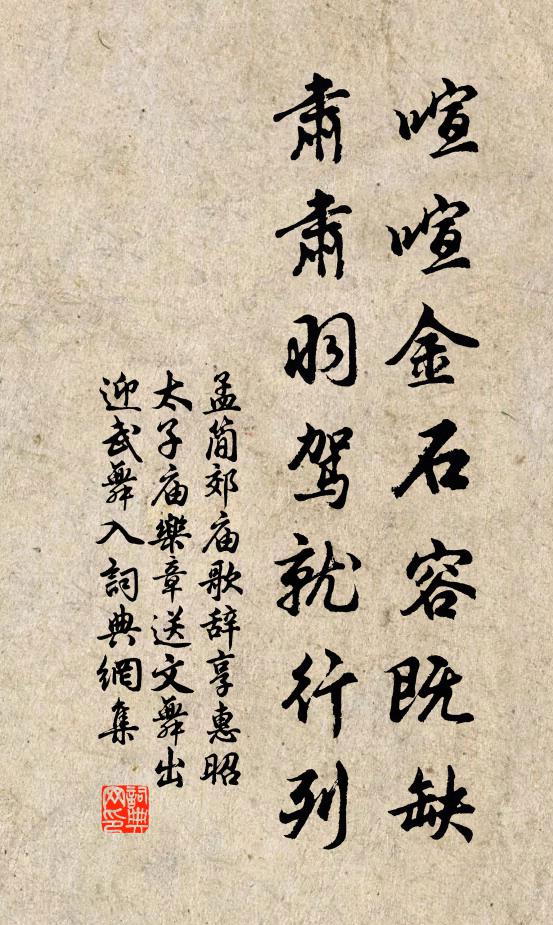 喧喧金石容既缺
肃肃羽驾就行列
孟简郊庙歌辞享惠昭
太子庙樂章送文舞出
迎武舞入詞典網集
詞典网印